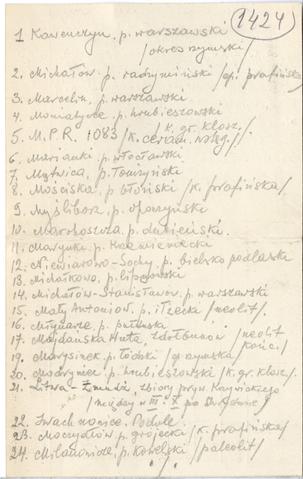 1424
1 Kawenczyn, p. warszawski
/okres rzymski/
2. Michałów. p. radzymiński /ep. prafińska
3. Marcelin, p. warszawski
4. Moniatycze, p. hrubieszowski
5. M.P.R. 1083 /k. ceram. wstęg./ /k. gr. klosz./
6. Marianki p. włocławski
7. Mętwica, p. łomżyński
8. Mościska p. błoński /k. prafińska/
9. Myślibórz, p. opoczyński
10. p. lubieński
11. Marynki p. Kozienicki
12. Niewiarowo-Sochy, p. Bielsko podlaska
13. Michałkowo, p. lipnowski
14. Michałów-Stanisławów p. warszawski
15. Mały Antoniów, p. iłżecki /neolit/
16. Młynarze, p. pułtuski
17. Majdańska Huta, Zdołbunów /neolit końc./
19. Marysinek p. łódzki /ep. rzymska/
20. Modryniec p. hrubieszowski /k. gr. klosz./
21. Litwa - Żmudź, zbiory pryw.
/między w III i X po
22. Podole
23. Moczydłów p. grójecki /k. prafińska/
24. p. kowelski /paleolit/